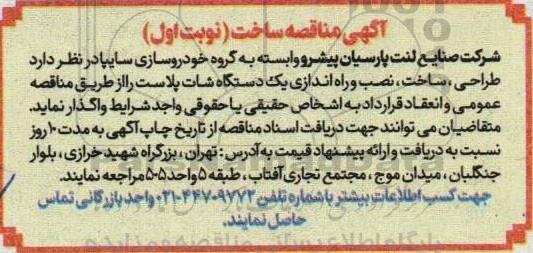 آگهی مناقصه ساخت (نوبت اول)
شرکت صنایع لنت پارسیان پیشرو وابسته به گروه خودروسازی سایپا در نظر دارد
طراحی ، ساخت ، نصب و راه اندازی یک دستگاه شات پلاست را از طریق مناقصه
عمومی و انعقاد قرارداد به اشخاص حقیقی یا حقوقی واجد شرایط واگذار نماید.
متقاضیان می توانند جهت دریافت اسناد مناقصه از تاریخ چاپ آگهی به مدت ۱۰ روز
نسبت به دریافت و ارائه پیشنهاد قیمت به آدرس : تهران ، بزرگراه شهید خرازی ، بلوار
جنگلبان ، میدان موج ، مجتمع تجاری آفتاب ، طبقه ۵ واحد ۵۰۵ مراجعه نمایند.
جهت کسب اطلاعات بیشتر با شماره تلفن ۴۴۷۰۹۷۷۲-۰۲۱ واحد بازرگانی تماس
حاصل نمایند.
پایگاه اطلاع رسانی مناقصه و مزایده